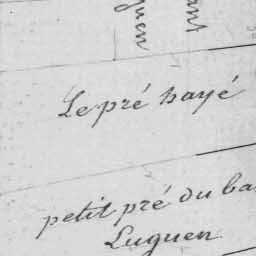 Le pré hayé
petit pré du ba
Luguen